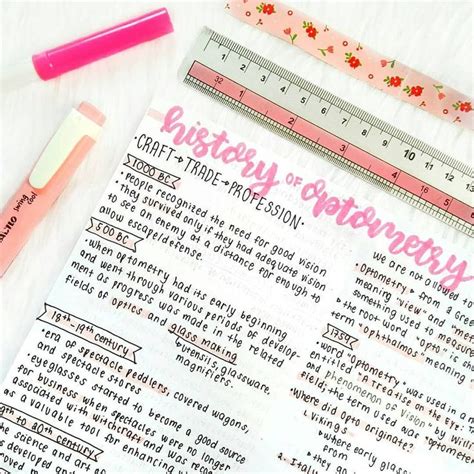 history of optometry
•CRAFT→TRADE→PROFESSION•
1000 BC
•people recognized the need for good vision
•they survived only if they had adequate vision
to see an enemy at a distance for enough to
allow escape/defense.
500 BC
•when optometry had its early beginning
and went through various periods of develop-
ment as progress was made in the related
fields of optics and glass making
→utensils, glassware,
magnifiers.
18th-19th century
•era of spectacle peddlers, covered wagons,
and spectacle stores
•eyeglasses started to become a good source
for business when spectacles were no longer
associated with witchcraft and was
as a valuable tool for enhancing
19th to 20th century
the science and art of
developed
we are not allowed
•optometry→from a
meaning "view" and
something used to measu
•the root word "opto"
term "ophthalmos" meaning
1759
•word "Optometry" was used in a
entitled "A treatise on the Eye:
and phenomenon of vision" by
fields, the term used was "optom
Where did opto originate?
1. Vikings
where early
from
swing cool
1 2 3 4 5 6 7 8 9 10 11 12